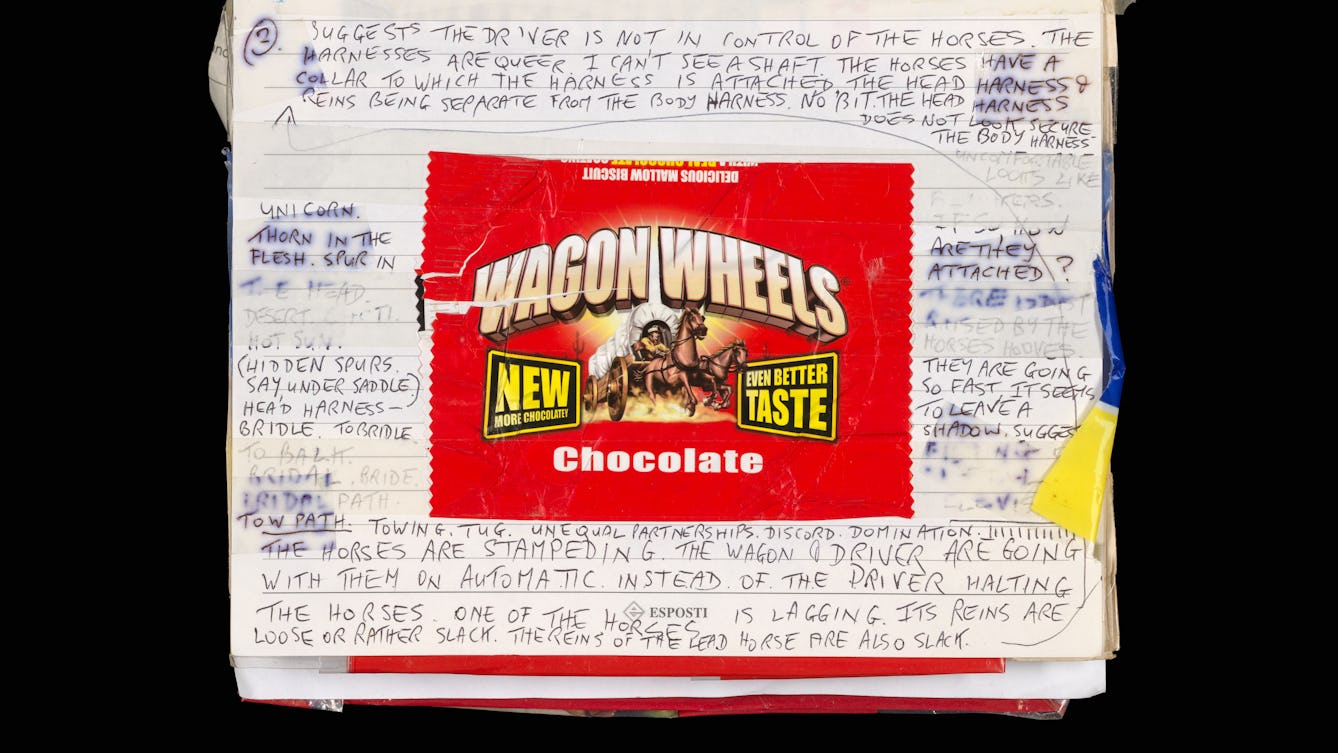 2. SUGGESTS THE DRIVER IS NOT IN CONTROL OF THE HORSES. THE
HARNESSES ARE QUEER. I CAN'T SEE A SHAFT. THE HORSES HAVE A
COLLAR TO WHICH THE HARNESS IS ATTACHED. THE HEAD HARNESS &
REINS BEING SEPARATE FROM THE BODY HARNESS. NO BIT. THE HEAD HARNESS
DOES NOT LOOK SECURE.
THE BODY HARNESS
UNCOMFORTABLE
LOOKS LIKE
ARE THEY
ATTACHED ?
THERE IS DUST
RAISED BY THE
HORSES HOOVES
THEY ARE GOING
SO FAST IT SEEMS
TO LEAVE A
SHADOW. SUGGEST
UNICORN.
THORN IN THE
FLESH. SPUR IN
THE HEAD.
DESERT.
HOT SUN.
(HIDDEN SPURS.
SAY UNDER SADDLE)
HEAD HARNESS —
BRIDLE. TO BRIDLE
TO BALK.
BRIDAL. BRIDE.
BRIDAL PATH.
DELICIOUS MALLOW BISCUIT
REAL CHOCOLATE
WAGON WHEELS
NEW
MORE CHOCOLATEY
EVEN BETTER
TASTE
Chocolate
TOW PATH. TOWING. TUG. UNEQUAL PARTNERSHIPS. DISCORD. DOMINATION.
THE HORSES ARE STAMPEDING. THE WAGON & DRIVER ARE GOING
WITH THEM ON AUTOMATIC. INSTEAD OF THE DRIVER HALTING
THE HORSES. ONE OF THE HORSES IS LAGGING. ITS REINS ARE
ESPOSTI
LOOSE OR RATHER SLACK. THE REINS OF THE LEAD HORSE ARE ALSO SLACK.